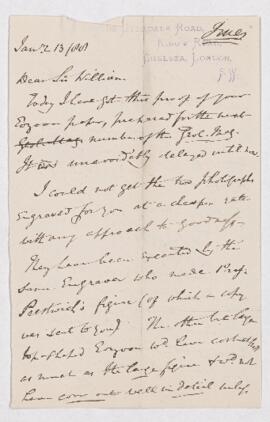 Jones
21 Tynedale Road,
King's Road,
Chelsea, London,
S.W.
Jany 13 / 81
Dear Sir William,
Today I have got this proof of your
Eozoon paper, prepared for the next
number of the Geol. Mag.
It was unavoidably delayed until now.
I could not get the two photographs
Engraved for you at a cheaper rate
with any approach to goodness.
They have been executed by the
same Engraver who made Prof.
Prestwich's figure (of which a copy
was sent to you). The other the large
top-shaped Eozoon wd. have cost
as much as the large figure & wd. not
have come out well in detail unless